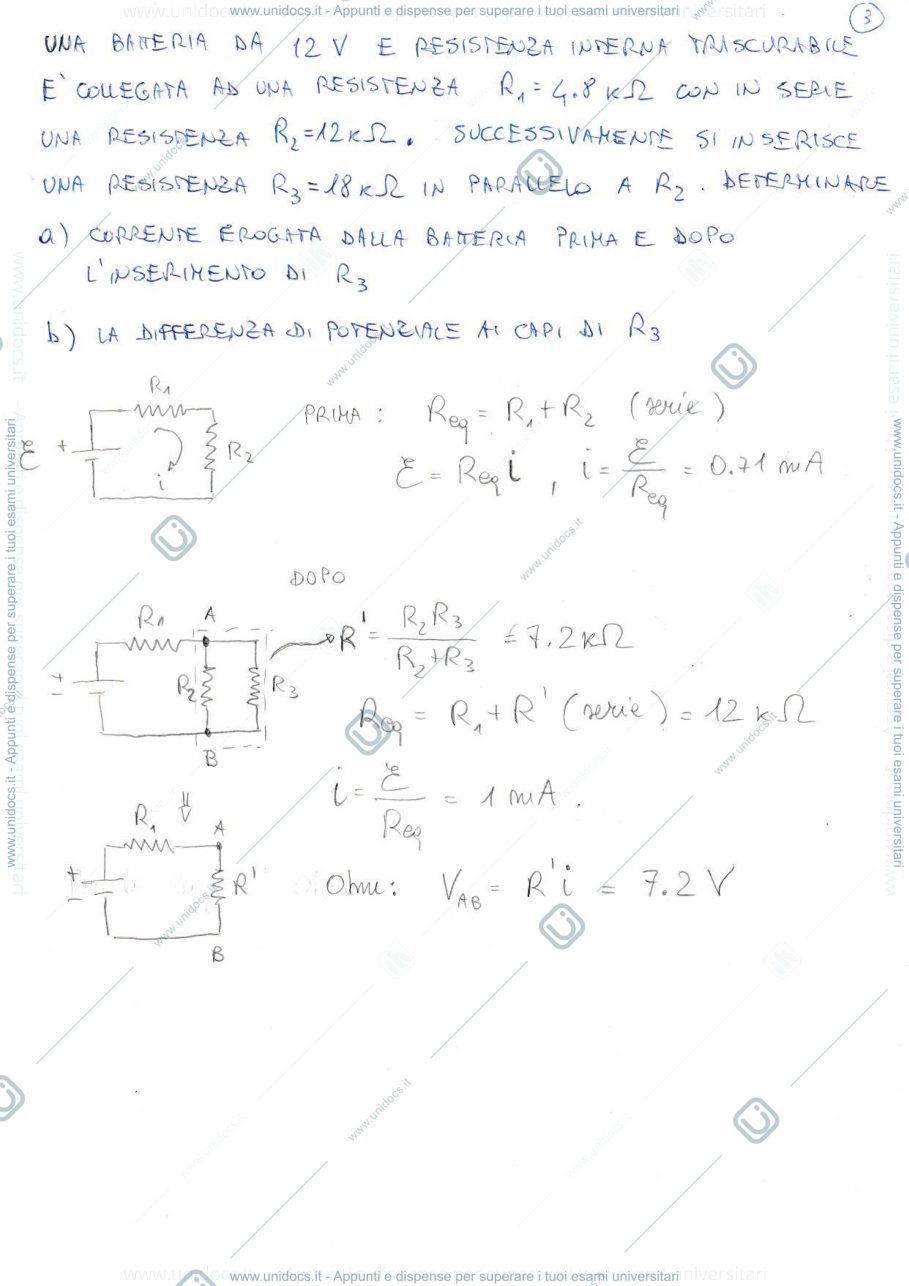 www.unidocs.it - Appunti e dispense per superare i tuoi esami universitari
3
UNA BATTERIA DA 12 V E RESISTENZA INTERNA TRASCURABILE
E' COLLEGATA AD UNA RESISTENZA R₁ = 4.8 KΩ CON IN SERIE
UNA RESISTENZA R₂ = 12 KΩ. SUCCESSIVAMENTE SI INSERISCE
UNA RESISTENZA R₃ = 18 KΩ IN PARALLELO A R₂. DETERMINARE
a) CORRENTE EROGATA DALLA BATTERIA PRIMA E DOPO
L'INSERIMENTO DI R₃
b) LA DIFFERENZA DI POTENZIALE AI CAPI DI R₃
R₁
ℰ + R₂
i
PRIMA : Req = R₁ + R₂ (serie)
ℰ = Req i , i = ℰ/Req = 0.71 mA
DOPO
R₁ A
+ - R₂ R₃
B
R' = R₂R₃/(R₂+R₃) = 7.2 KΩ
Req = R₁ + R' (serie) = 12 KΩ
i = ℰ/Req = 1 mA .
⇓
R₁ A
+ - R'
B
Ohm : V_AB = R' i = 7.2 V
www.unidocs.it - Appunti e dispense per superare i tuoi esami universitari